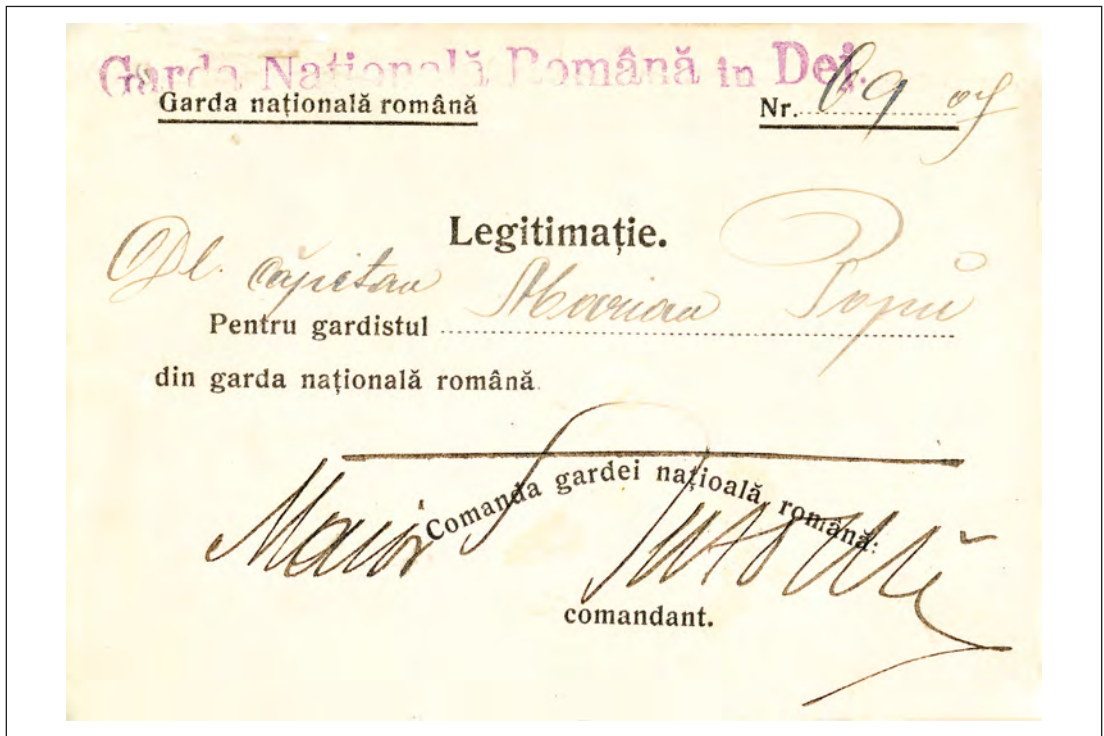 Garda Națională Română in Dej.
Garda națională română
Nr. 69
Legitimație.
Dl. căpitan Marian Popu
Pentru gardistul
din garda națională română.
Comanda gardei națioală, română:
Maior
comandant.